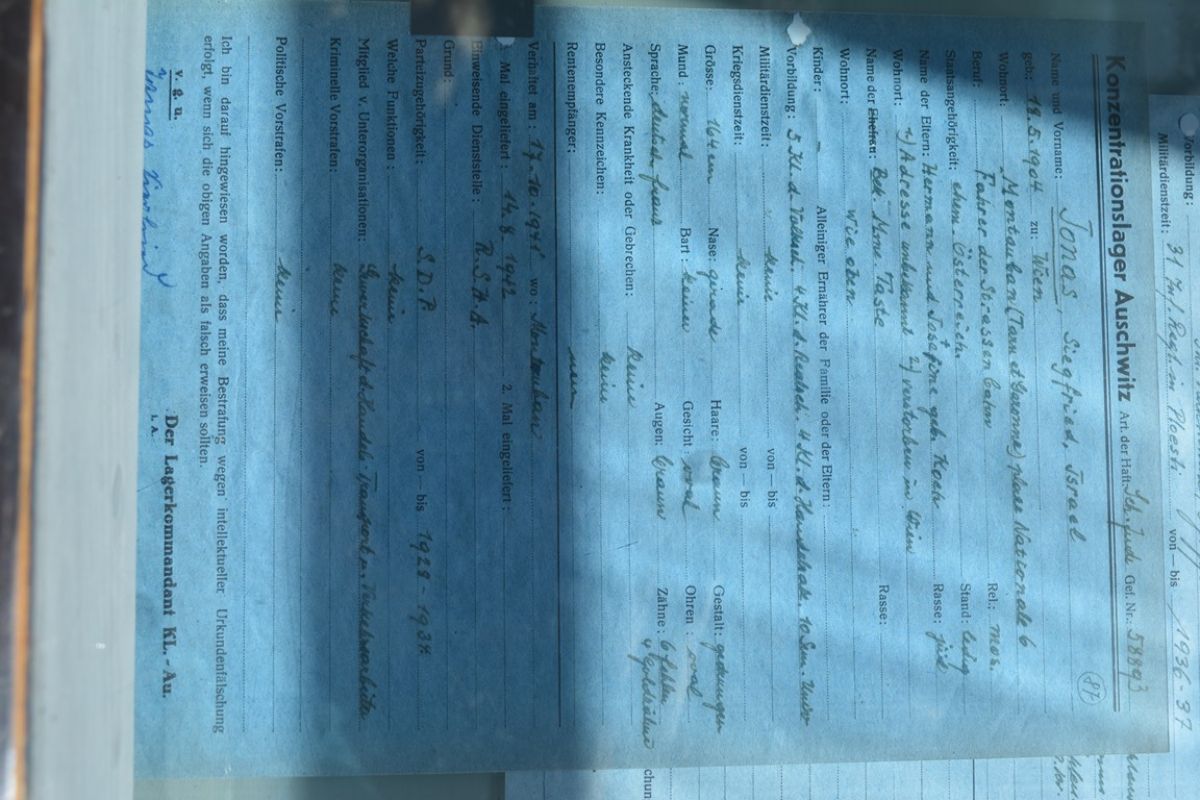 Vorbildung:
Militärdienstzeit: 31 Inf. Regt. in Ploesti. von — bis 1936 - 37
Konzentrationslager Auschwitz Art. der Haft: Sch. Jude Gef. Nr.: 58893
87
Name und Vorname: Jonas, Siegfried, Israel
geb.: 18.5.1904 zu: Wien
Wohnort: Montauban (Tarn et Garonne) place Nationale 6
Beruf: Fahrer der Strassenbahn Rel.: mos.
Staatsangehörigkeit: ehem. Österreich. Stand: ledig
Name der Eltern: Hermann und Josefine geb. Kohn Rasse: jüd
Wohnort: 1) Adresse unbekannt 2) verstorben in Wien
Name der Ehefrau: Bek. Mme. Taste Rasse:
Wohnort: wie oben
Kinder: - Alleiniger Ernährer der Familie oder der Eltern:
Vorbildung: 5 Kl. d. Volksch. 4 Kl. d. Realsch. 4 Kl. d. Handelsak. 10 Sem. Univer
Militärdienstzeit: keine von — bis
Kriegsdienstzeit: keine von — bis
Grösse: 164 cm Nase: gerade Haare: braun Gestalt: gedrungen
Mund: normal Bart: keinen Gesicht: oval Ohren: oval
Sprache: deutsch, franz Augen: braun Zähne: 6 fehlen
4 Goldzähne
Ansteckende Krankheit oder Gebrechen: keine
Besondere Kennzeichen: keine
Rentenempfänger: nein
Verhaftet am: 17.10.1941 wo: Montauban
Mal eingeliefert: 14.8.1942 2. Mal eingeliefert:
Einweisende Dienststelle: R.S.H.A.
Grund:
Parteizugehörigkeit: S.D.P von — bis 1928 - 1934
Welche Funktionen: keine
Mitglied v. Unterorganisationen: Gewerkschaft d. Handels- Transport u. Verkehrsarbeiter
Kriminelle Vorstrafen: keine
Politische Vorstrafen: keine
Ich bin darauf hingewiesen worden, dass meine Bestrafung wegen intellektueller Urkundenfälschung
erfolgt, wenn sich die obigen Angaben als falsch erweisen sollten.
v. g. u. Der Lagerkommandant KL.-Au.
I. A.